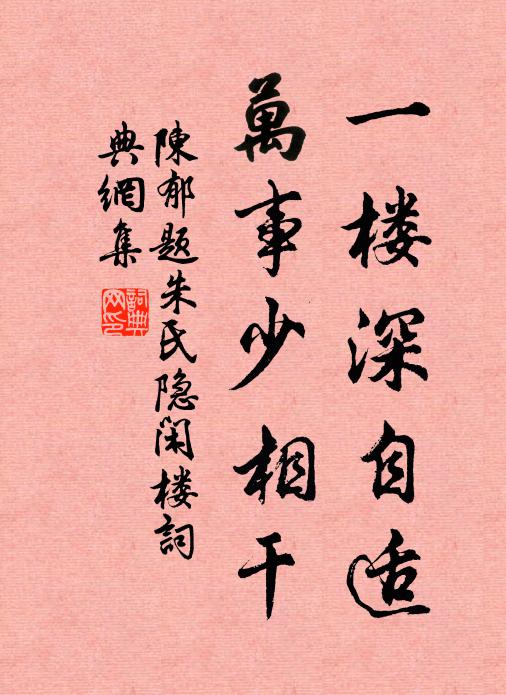 一楼深自适
萬事少相干
陳郁题朱氏隐闲楼詞
典網集
詞典
网印